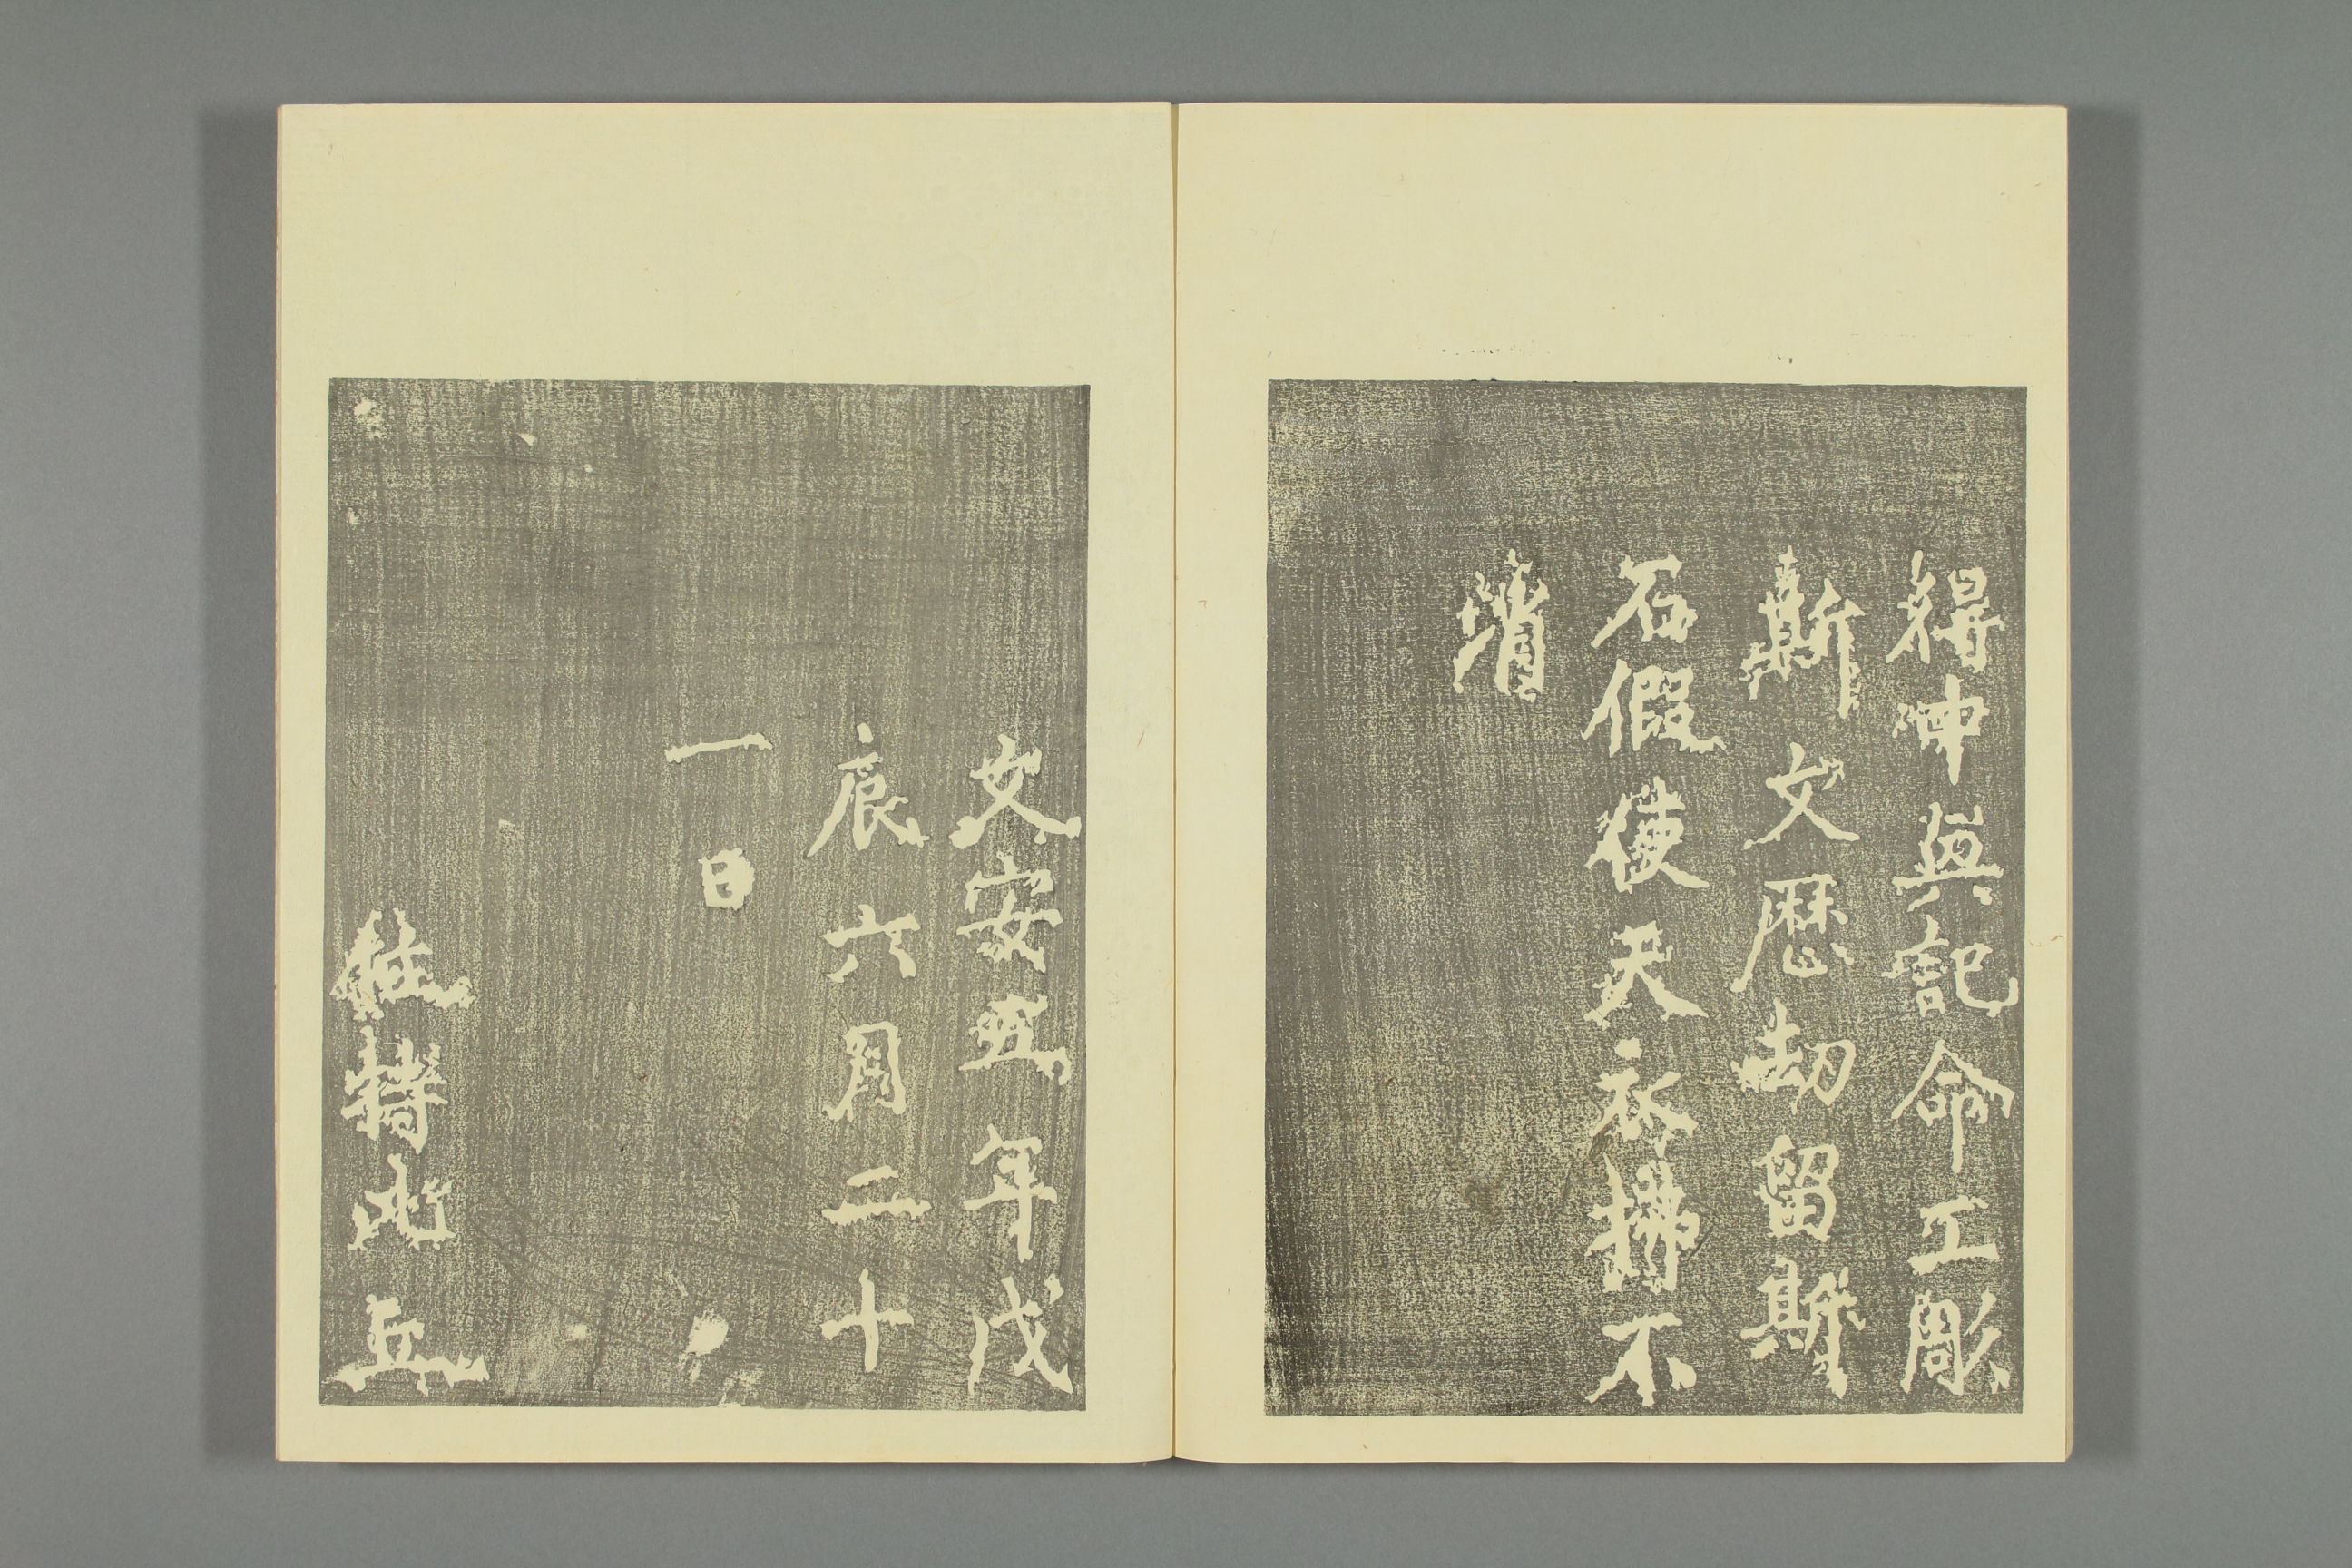 得坤與記命工彫
斯文歴劫留斯
石假使天拂不
消
文安五年戊
辰六月二十
一日
住持比丘